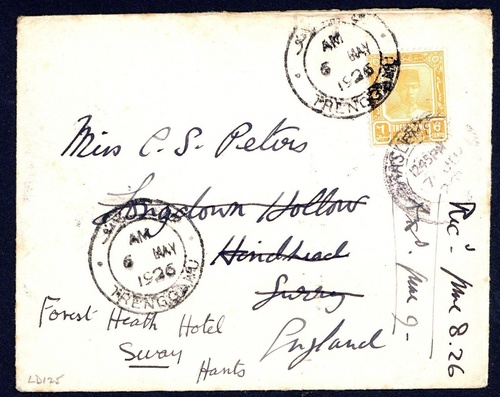 AM
6 MAY
1926
TRENGGANU
Miss C. S. Peters
Longdown Hollow
Hindhead
Surrey
England
AM
6 MAY
1926
TRENGGANU
Forest Heath Hotel
Sway
Hants
LD125
12 45 PM
7
Rec'd June 8.26
June 9-